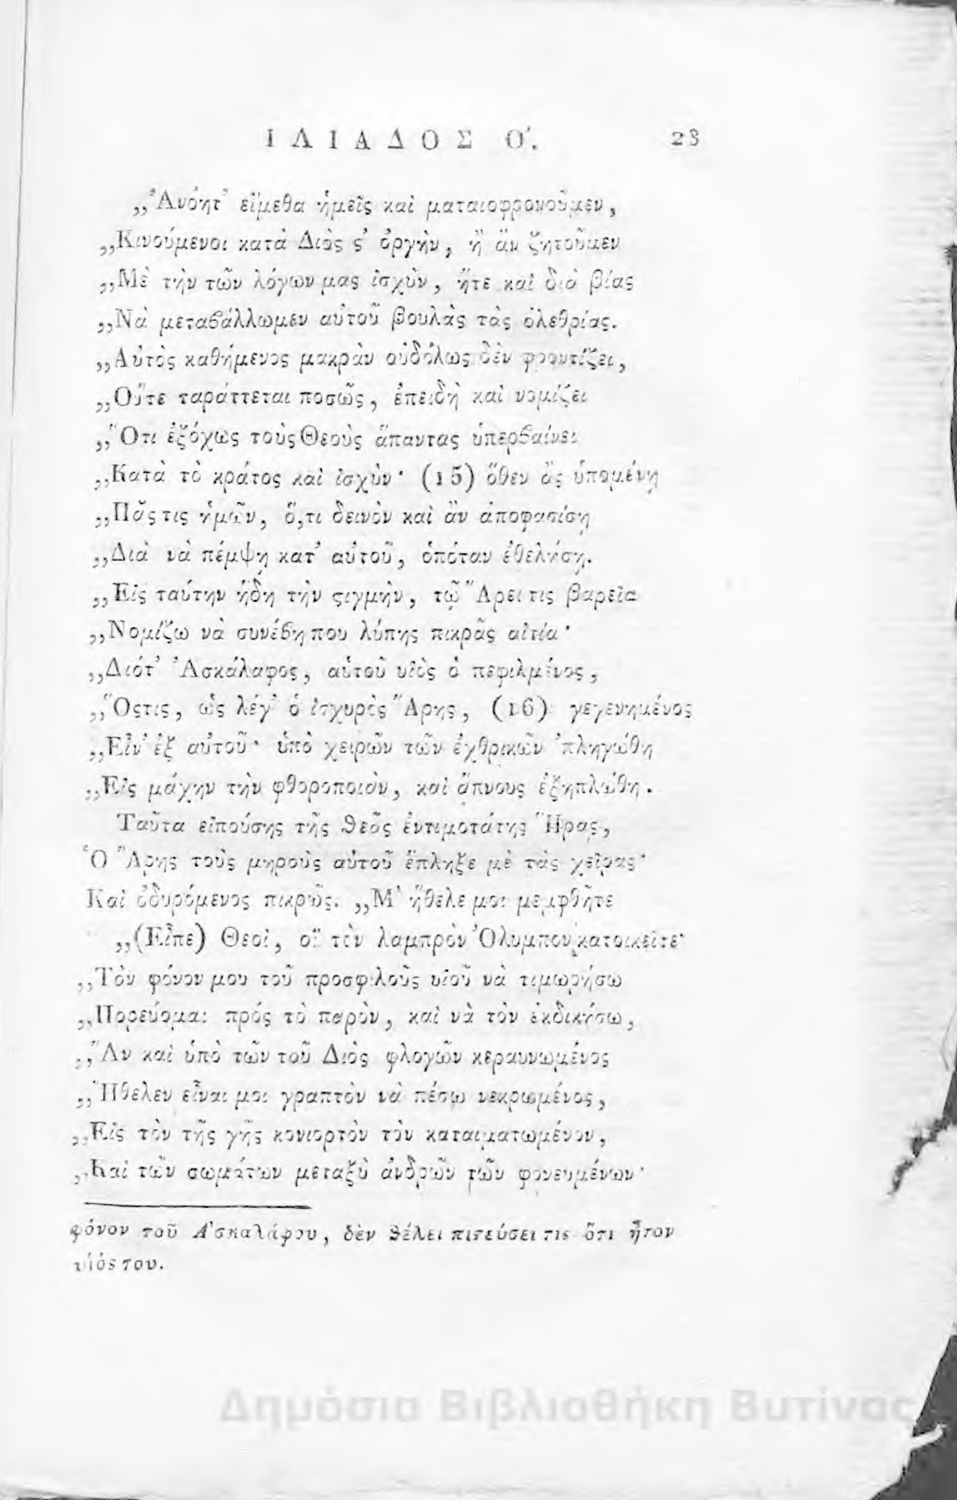 ΙΛΙΑΔΟΣ Ο'. 23
„Ἀνόητ' εἴμεθα ἡμεῖς καὶ ματαιοφρονοῦμεν,
„Κινούμενοι κατὰ Διὸς ς' ὀργὴν, ἢ ἂν ζητοῦμεν
„Μὲ τὴν τῶν λόγων μας ἰσχὺν, ἤτε καὶ διὰ βίας
„Νὰ μεταβάλλωμεν αὐτοῦ βουλὰς τὰς ὀλεθρίας.
„Αὐτὸς καθήμενος μακρὰν οὐδόλως δὲν φροντίζει,
„Οὔτε ταράττεται ποσῶς, ἐπειδὴ καὶ νομίζει
„Ὅτι ἐξόχως τοὺς Θεοὺς ἅπαντας ὑπερβαίνει
„Κατὰ τὸ κράτος καὶ ἰσχύν· (15) ὅθεν ἂς ὑπομένῃ
„Πᾶς τις ἡμῶν, ὅ,τι δεινὸν καὶ ἂν ἀποφασίσῃ
„Διὰ νὰ πέμψῃ κατ' αὐτοῦ, ὁπόταν ἐθελήσῃ.
„Εἰς ταύτην ἤδη τὴν ςιγμὴν, τῷ Ἄρει τις βαρεῖα
„Νομίζω νὰ συνέβη που λύπης πικρᾶς αἰτία·
„Διότ' Ἀσκάλαφος, αὐτοῦ υἱὸς ὁ πεφιλμένος,
„Ὅςτις, ὡς λέγ' ὁ ἰσχυρὸς Ἄρης, (16) γεγενημένος
„Εἶν' ἐξ αὐτοῦ· ὑπὸ χειρῶν τῶν ἐχθρικῶν 'πληγώθη
„Εἰς μάχην τὴν φθοροποιὸν, καὶ ἄπνους ἐξηπλώθη.
Ταῦτα εἰπούσης τῆς Θεᾶς ἐντιμοτάτης Ἥρας,
Ὁ Ἄρης τοὺς μηροὺς αὐτοῦ ἔπληξε μὲ τὰς χεῖρας·
Καὶ ὀδυρόμενος πικρῶς. „Μ' ἤθελε μοι μεμφθῆτε
„(Εἶπε) Θεοὶ, οἳ τὸν λαμπρὸν Ὄλυμπον κατοικεῖτε·
„Τὸν φόνον μου τοῦ προσφιλοῦς υἱοῦ νὰ τιμωρήσω
„Πορεύομαι πρὸς τὸ παρὸν, καὶ νὰ τὸν ἐκδικήσω,
„Ἂν καὶ ὑπὸ τῶν τοῦ Διὸς φλογῶν κεραυνωμένος
„Ἤθελεν εἶναι μοι γραπτὸν νὰ πέσω νεκρωμένος,
„Εἰς τὸν τῆς γῆς κονιορτὸν τὸν καταιματωμένον,
„Καὶ τῶν σωμάτων μεταξὺ ἀνδρῶν τῶν φονευμένων·
φόνον τοῦ Ἀσκαλάφου, δὲν θέλει πιςεύσει τις ὅτι ἦτον
υἱός του.
Δημόσια Βιβλιοθήκη Βυτίνας